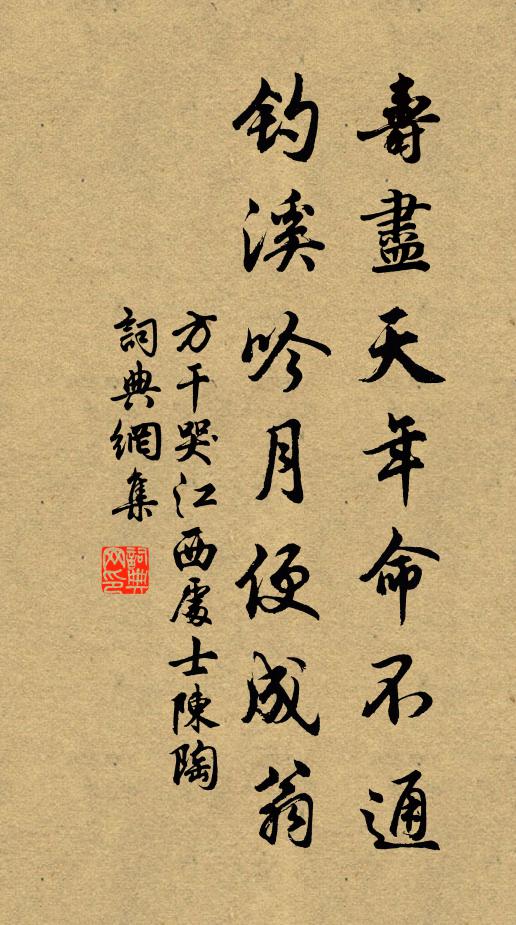 壽盡天年命不通
釣溪吟月便成翁
方干哭江西處士陳陶
詞典網集
詞典网印